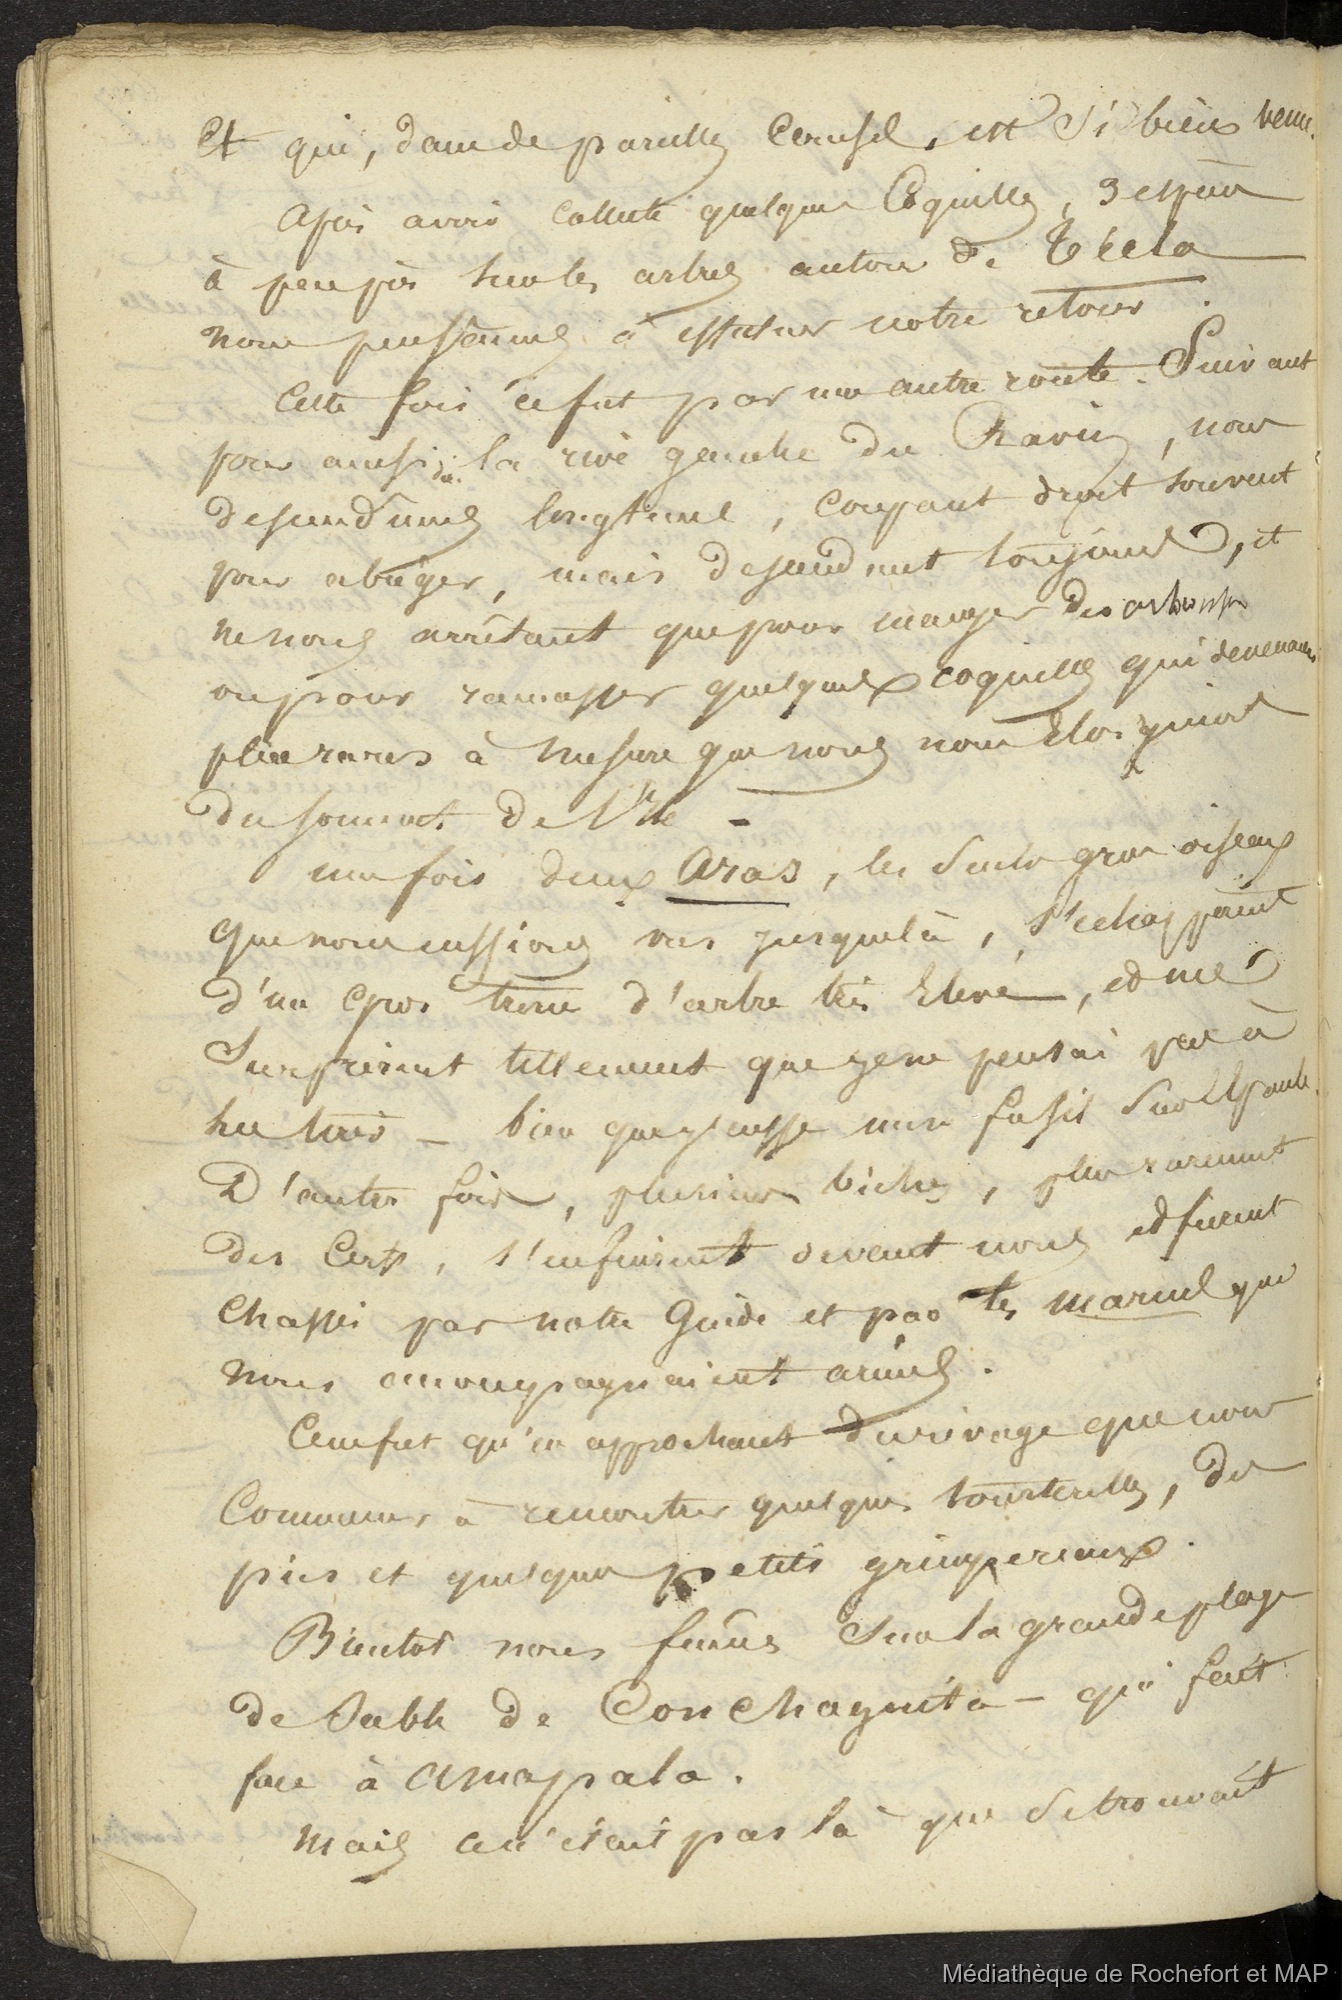 Et qui, dans de pareilles courses, est si bien venu.
Après avoir collecté quelques Coquilles, 3 espèces
à peu près sur les arbres autour de Técla
nous pensâmes à effectuer notre retour.
Cette fois ce fut par une autre route. Suivant
pour ainsi dire la rive gauche du Ravin, nous
descendîmes longtems, coupant droit souvent
pour abréger, mais descendant toujours, et
ne nous arrêtant que pour manger des
ou pour ramasser quelques coquilles qui devenaient
plus rares à mesure que nous nous éloignions
du sommet de l'île -
une fois deux Aras, les seuls gros oiseaux
que nous eussions vus jusque là, s'échappèrent
d'un gros tronc d'arbre très élevé, et me
surprirent tellement que je ne pensai pas à
les tirer - bien que j'eusse mon fusil sur l'épaule.
D'autres fois, plusieurs biches, plus rarement
des Cerfs, s'enfuirent devant nous et furent
chassés par notre Guide et par les marins qui
nous accompagnaient armés.
Ce ne fut qu'en approchant du rivage que nous
Commençames à rencontrer quelques tourterelles, des
pies et quelques petits grimpereaux.
Bientôt nous fûmes sur la grande plage
de Sable de Conchaguita - qui fait
face à Amapala.
Mais ce n'était pas là que se trouvait
Médiathèque de Rochefort et MAP